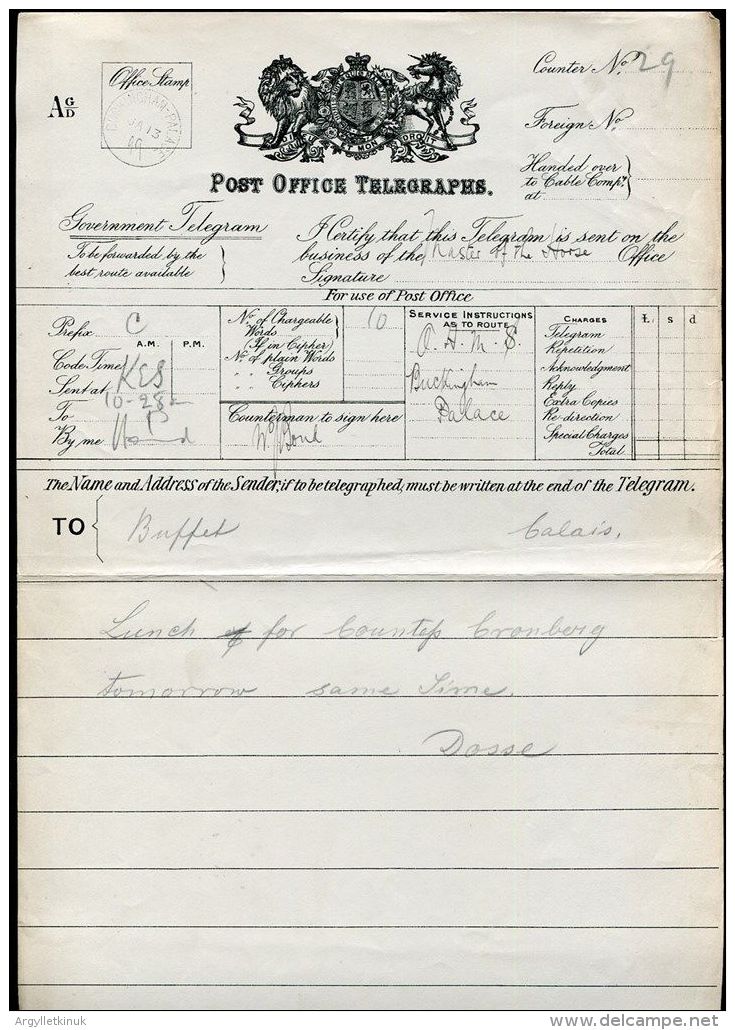 Office Stamp
BUCKINGHAM-PALACE
JA 13
10
A G/D
HONI SOIT QUI MAL Y PENSE
DIEU ET MON DROIT
Counter No. 29
Foreign No.
Handed over
to Cable Compy.
at
POST OFFICE TELEGRAPHS.
Government Telegram
To be forwarded by the
best route available
I Certify that this Telegram is sent on the
business of the Master of the Horse Office
Signature
For use of Post Office
Prefix C
A.M. P.M.
Code Time
Sent at KES
10-28
To
By me
No. of Chargeable 10
Words
(If in Cipher)
No. of plain Words
" Groups
" Ciphers
Counterman to sign here
SERVICE INSTRUCTIONS
AS TO ROUTE
O.H.M.S.
Buckingham
Palace
CHARGES £ s d
Telegram
Repetition
Acknowledgment
Reply
Extra Copies
Re-direction
Special Charges
Total
The Name and Address of the Sender, if to be telegraphed, must be written at the end of the Telegram.
TO Buffet Calais,
Lunch for Countess Cronberg
tomorrow same time.
Dosse
Argylletkinuk
delcampe.net